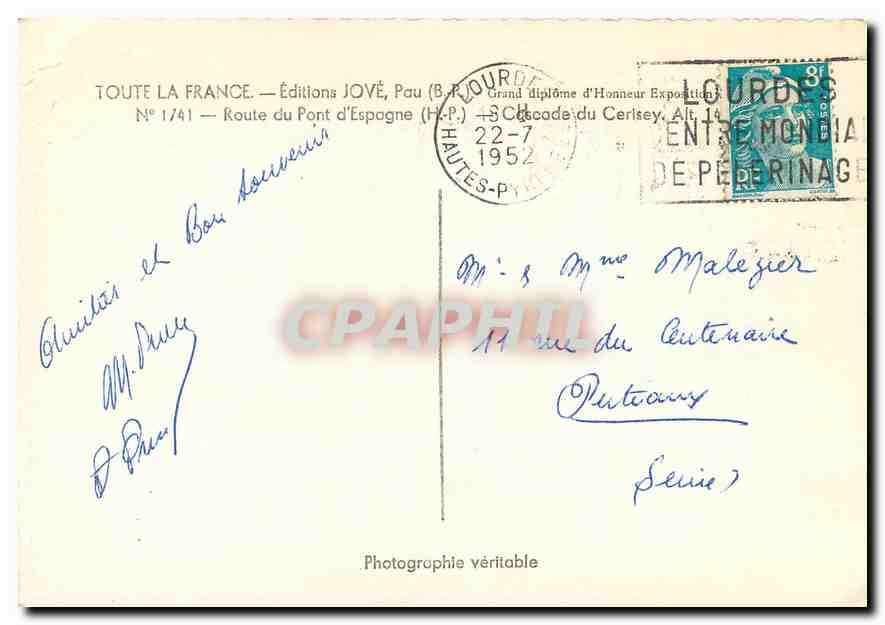 TOUTE LA FRANCE. — Éditions JOVÉ, Pau (B.-P.) Grand diplôme d'Honneur Exposition
N° 1741 — Route du Pont d'Espagne (H.-P.) — Cascade du Cerisey. Alt. 14
LOURDES
22-7
1952
HAUTES-PYRÉNÉES
LOURDES
CENTRE MONDIAL
DE PÈLERINAGE
8F
POSTES
RF
Amitiés et Bon souvenir
Mr & Mme Malézier
11 rue du Centenaire
Puteaux
(Seine)
CPAPHIL
Photographie véritable